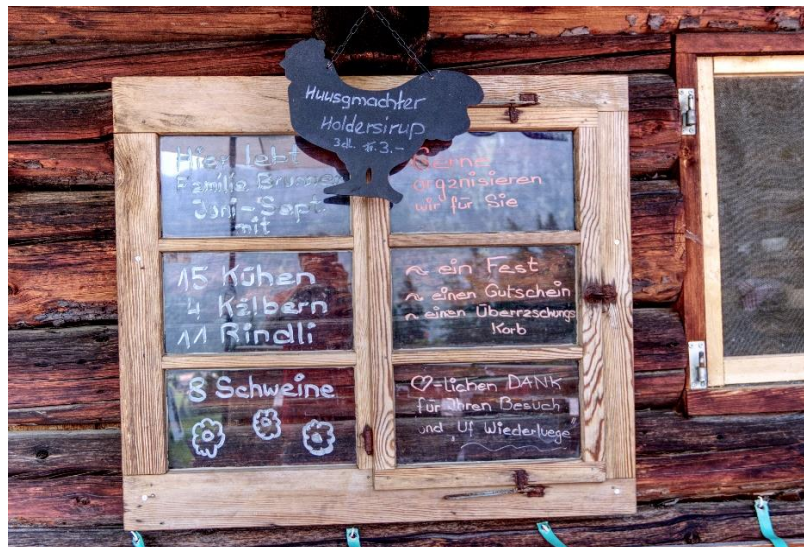 Huusgmachter
Holdersirup
3dl. Fr. 3.-
Hier lebt
Familie Brunner
Juni-Sept
mit
15 Kühen
4 Kälbern
11 Rindli
8 Schweine
Gerne
organisieren
wir für Sie
~ ein Fest
~ einen Gutschein
~ einen Überraschungs
Korb
♡-lichen DANK
für Ihren Besuch
und "Uf Wiederluege"